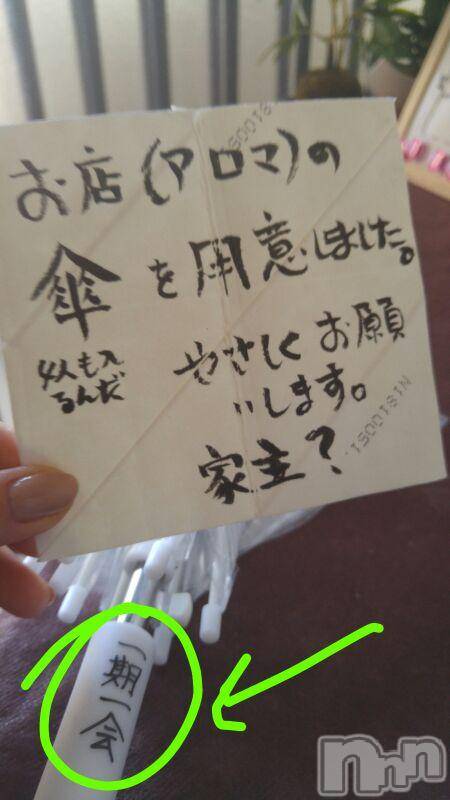 お店(アロマ)の
傘を用意しました。
4人も入
るんだ
やさしくお願
いします。
家主?
N1810051
一期一会
nnn